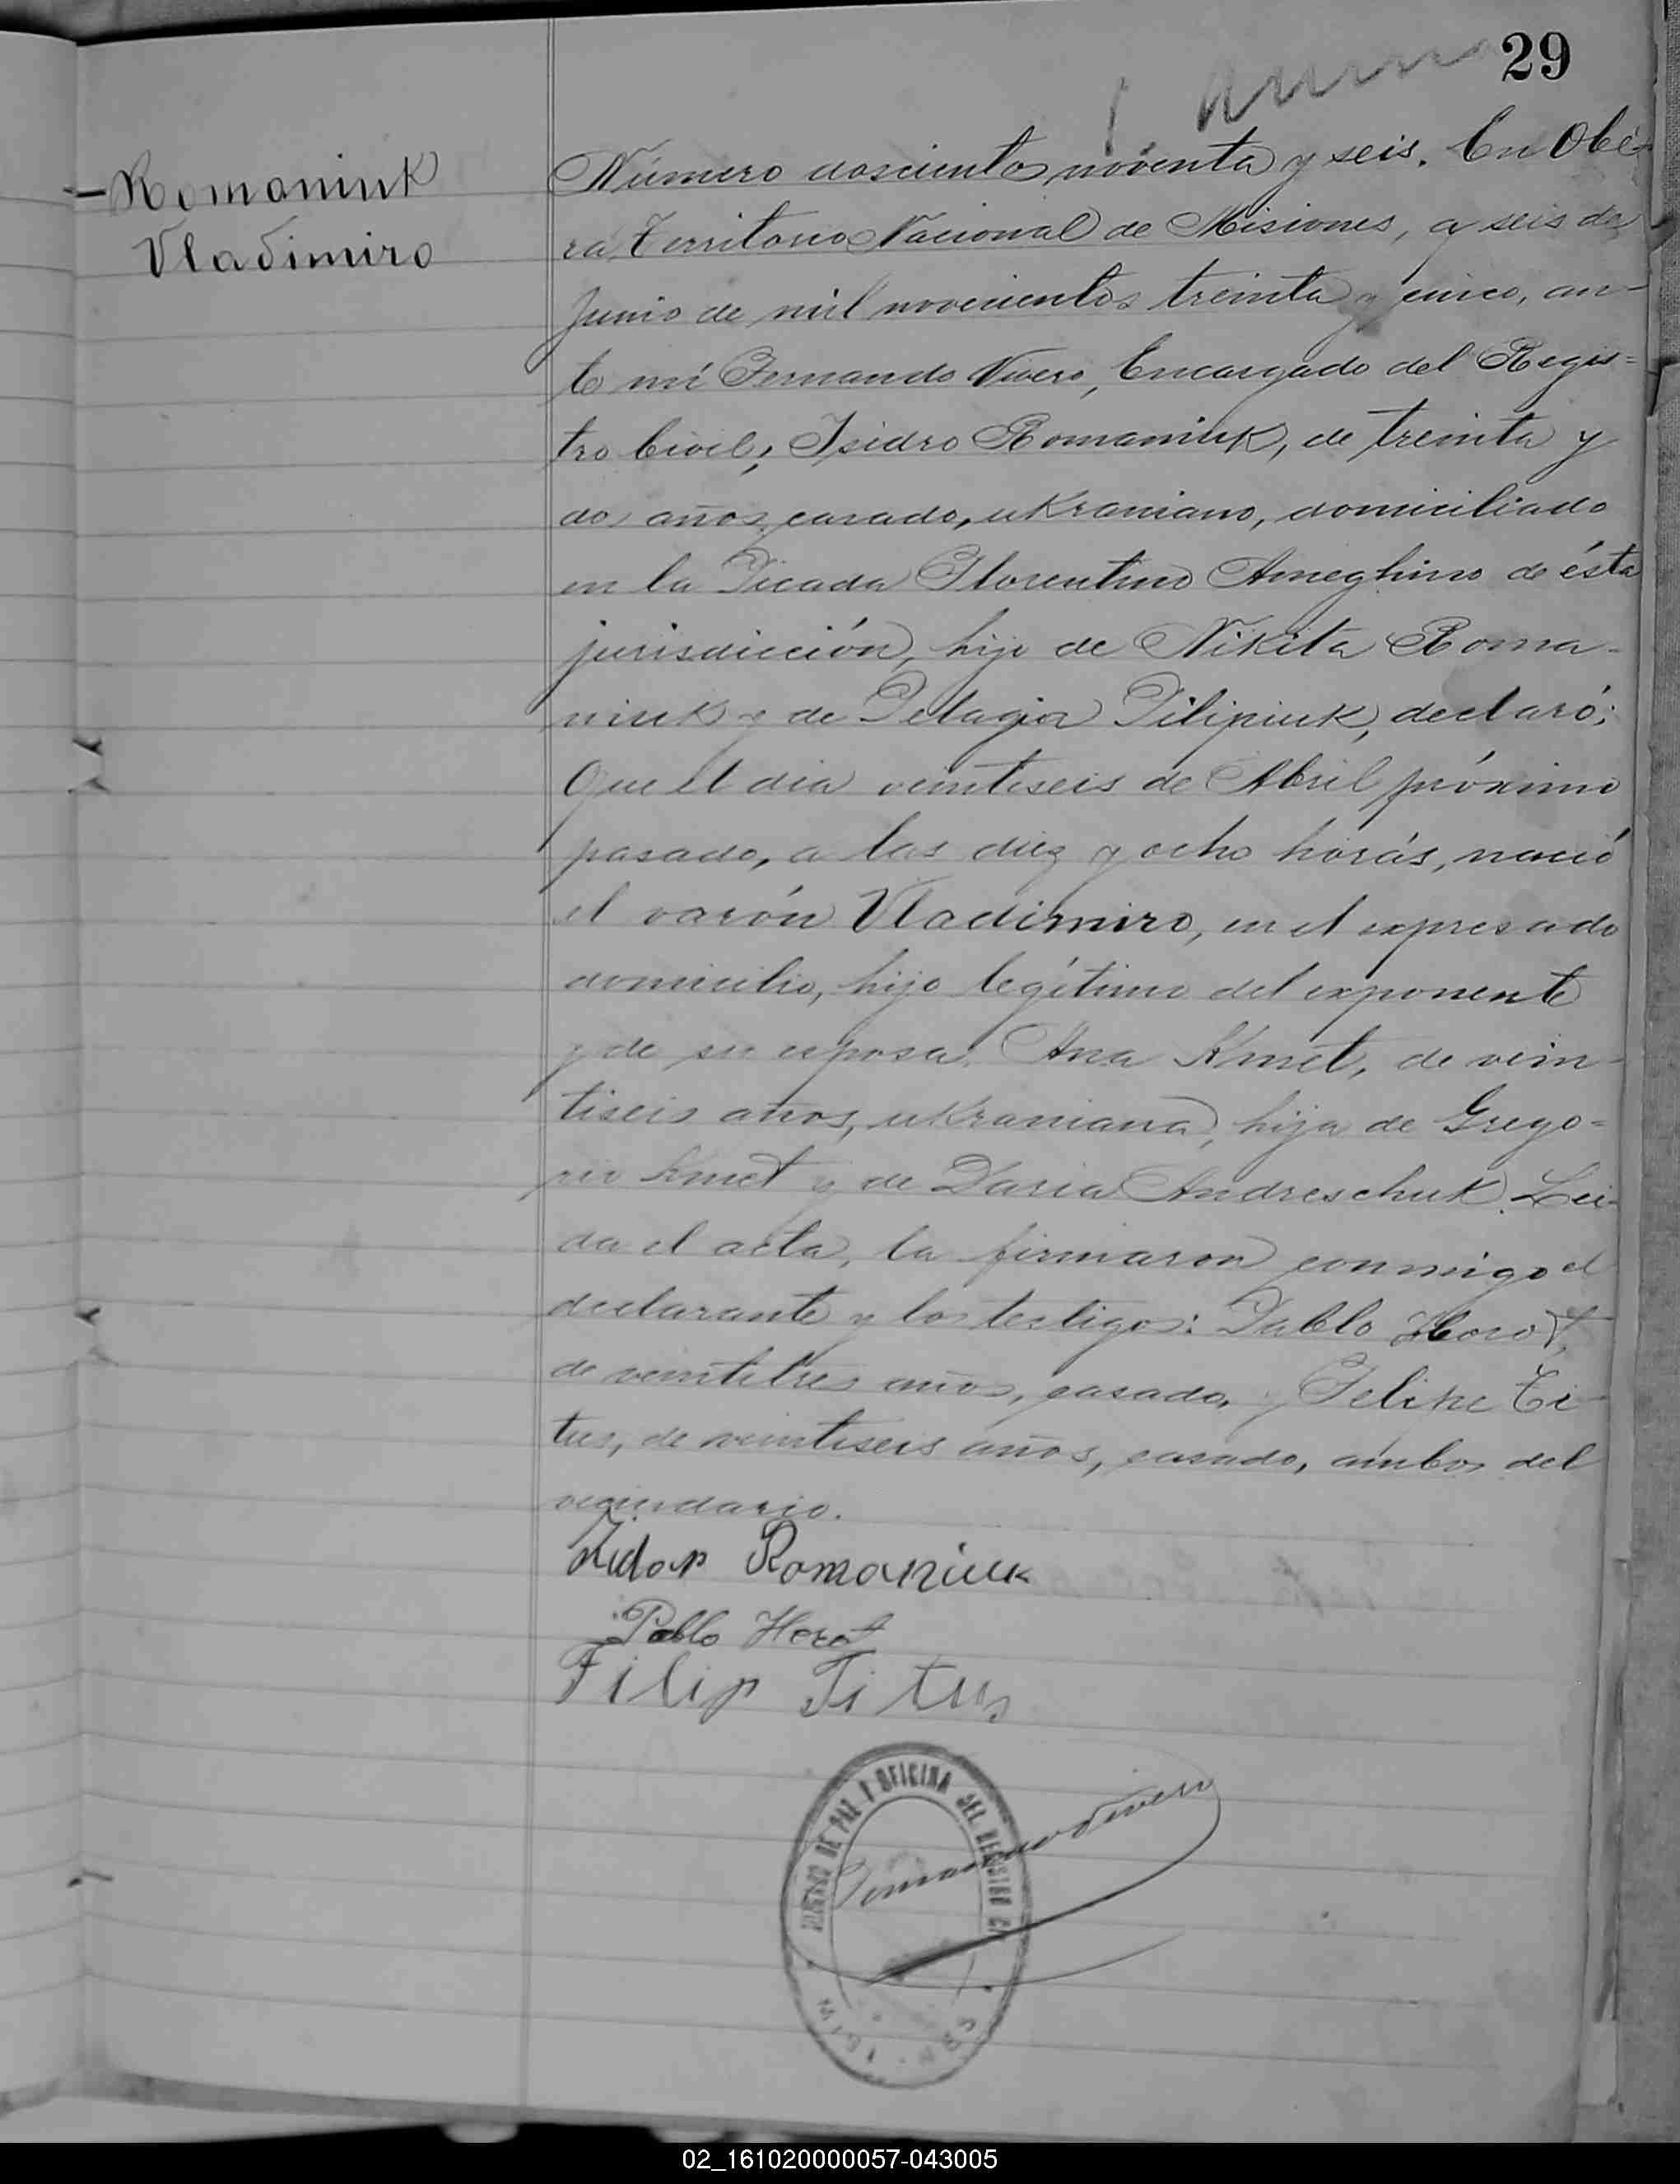 29
Romaniuk
Vladimiro
Número doscientos noventa y seis. En Obe-
rá, Territorio Nacional de Misiones, a seis de
Junio de mil novecientos treinta y cinco, an-
te mí Fernando Vivero, Encargado del Regis=
tro Civil, Isidro Romaniuk, de treinta y
dos años, casado, ukraniano, domiciliado
en la Picada Florentino Ameghino de ésta
jurisdicción, hijo de Nikita Roma-
niuk y de Pelagia Pilipiuk, declaró:
Que el día veintiseis de Abril próximo
pasado, a las diez y ocho horas, nació
el varón Vladimiro, en el expresado
domicilio, hijo legítimo del exponente
y de su esposa, Ana Kmet, de vein-
tiseis años, ukraniana, hija de Grego=
rio Kmet y de Daria Andreschuk. Leí-
da el acta, la firmaron conmigo el
declarante y los testigos: Pablo Horot,
de veintitres años, casado, y Felipe Ti-
tus, de veintiseis años, casado, ambos del
vecindario.
Izidor Romaniuk
Pablo Horot
Filip Titus
Fernando Vivero
JUZGADO DE PAZ Y OFICINA DEL REGISTRO
02_161020000057-043005